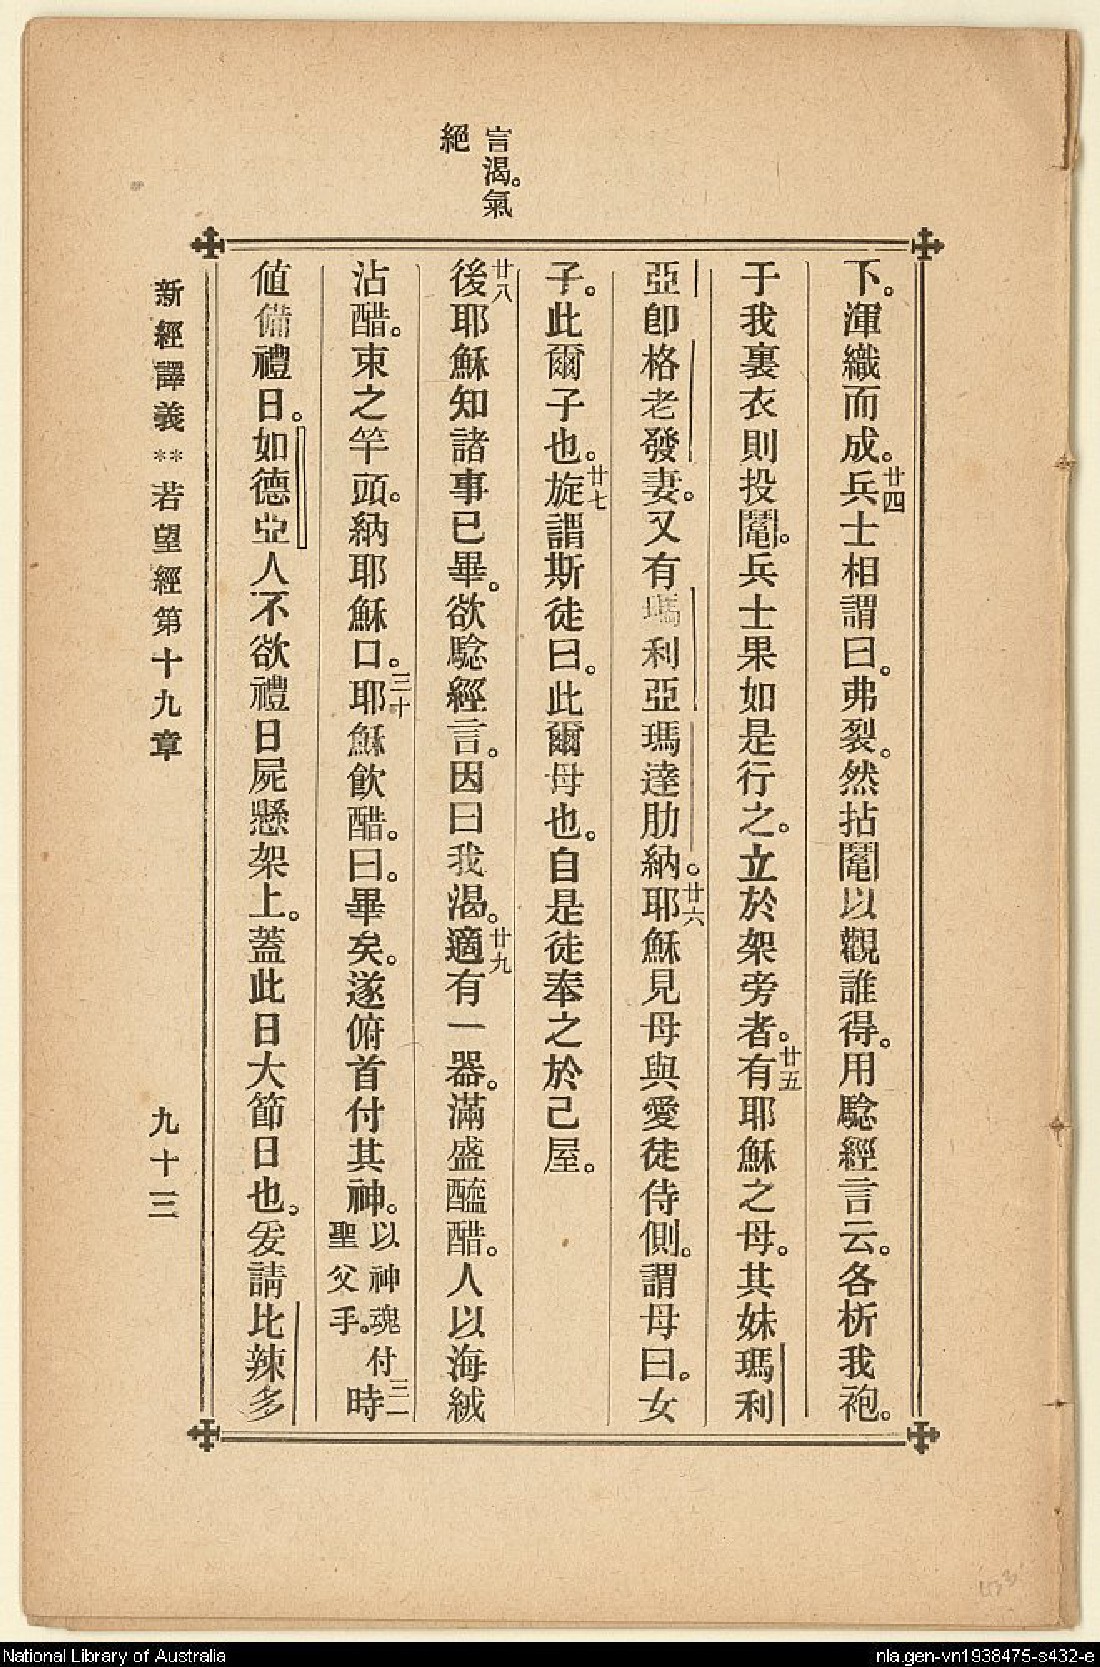 言渴。氣
絕
下。渾織而成。廿四兵士相謂曰。弗裂。然拈鬮以觀誰得。用騐經言云。各析我袍。
于我裏衣則投鬮。兵士果如是行之。立於架旁者。廿五有耶穌之母。其妹瑪利
亞卽格老發妻。又有瑪利亞瑪達肋納。廿六耶穌見母與愛徒侍側。謂母曰。女
子。此爾子也。廿七旋謂斯徒曰。此爾母也。自是徒奉之於己屋。
廿八後耶穌知諸事已畢。欲騐經言。因曰我渴。廿九適有一器。滿盛醯醋。人以海絨
沾醋。束之竿頭。納耶穌口。三十耶穌飮醋。曰。畢矣。遂俯首付其神。以神魂付聖父手。三一時
値備禮日。如德亞人不欲禮日屍懸架上。蓋此日大節日也。爰請比辣多
新經譯義**若望經第十九章 九十三
National Library of Australia
nla.gen-vn1938475-s432-e